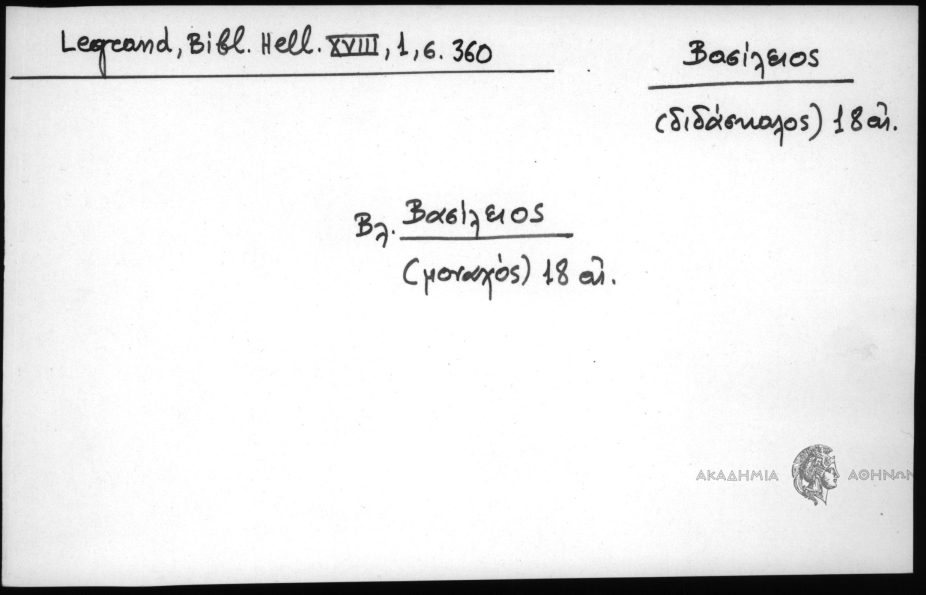 Legrand, Bibl. Hell. XVIII, 1, σ. 360
Βασίλειος
(διδάσκαλος) 18 αἰ.
Βλ. Βασίλειος
(μοναχός) 18 αἰ.
ΑΚΑΔΗΜΙΑ ΑΘΗΝΩΝ